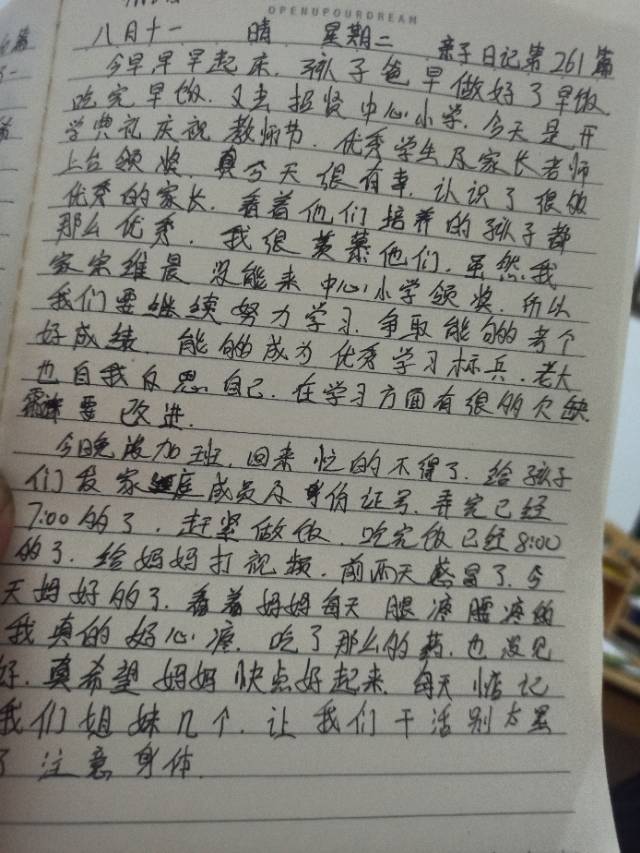 OPENUPOURDREAM
八月十一 晴 星期二 亲子日记第261篇
今早早早起床. 孩子爸早做好了早饭
吃完早饭. 又去招贤中心小学. 今天是开
学典礼庆祝教师节. 优秀学生及家长老师
上台领奖. 真今天很有幸. 认识了很
优秀的家长. 看着他们培养的孩子都
那么优秀. 我很羡慕他们. 虽然我
家宗维晨没能来中心小学领奖. 所以
我们要继续努力学习. 争取能的考个
好成绩. 能的成为优秀学习标兵. 老大
也自我反思自己. 在学习方面有很的欠缺
要改进.
今日晚没加班. 回来忙的不得了. 给孩子
们发家庭成员及身份证号. 弄完已经
7:00的了. 赶紧做饭. 吃完饭已经8:00
的了. 给妈妈打视频. 前两天感冒了. 今
天好的了. 看着妈妈每天腿疼腰疼的
我真的好心疼. 吃了那么的药. 也没见
好. 真希望妈妈快点好起来. 每天惦记
我们姐妹几个. 让我们干活别太累
了注意身体.